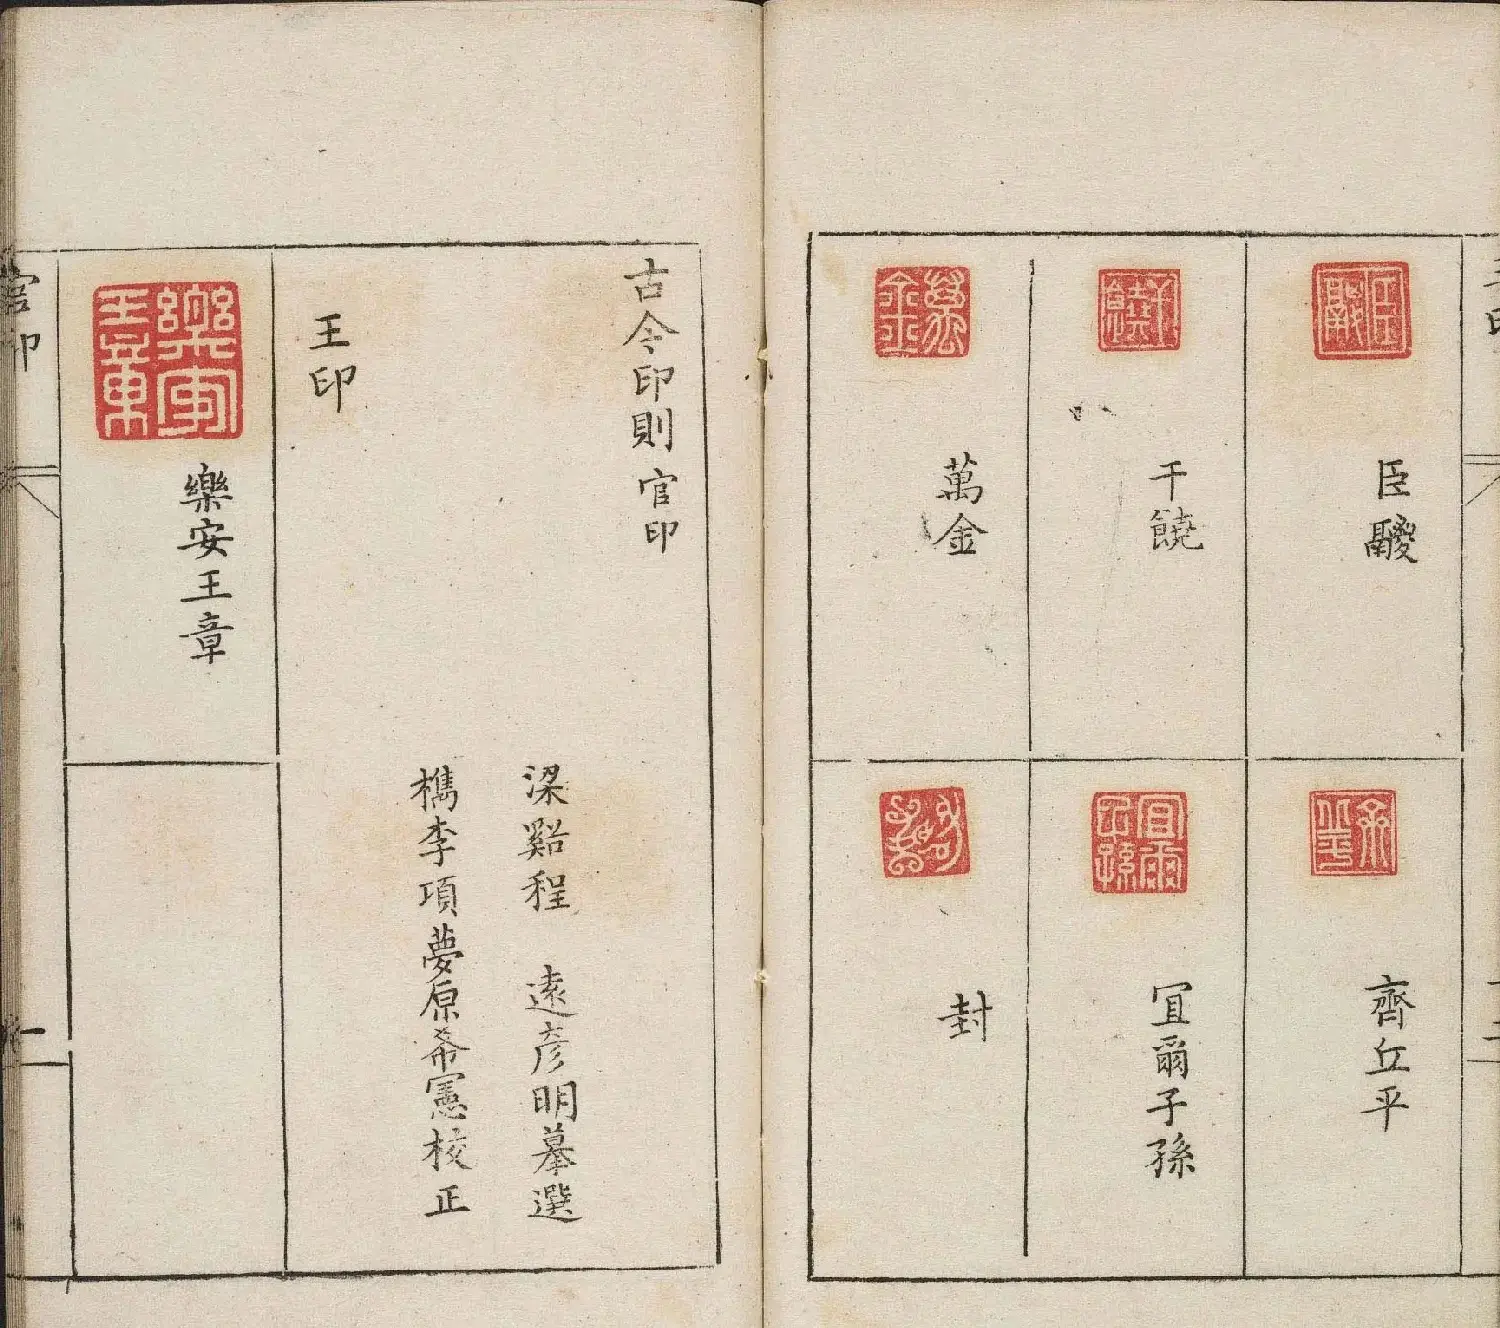 臣鬷
干饒
萬金
齊丘平
宜爾子孫
封
古今印則 官印
梁谿程 遠彦明摹選
檇李項夢原希憲校正
王印
樂安王章
官印
一